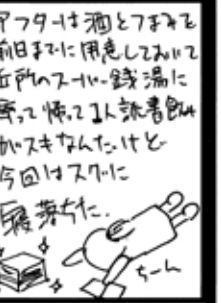 アフターは酒とつまみを
前日までに用意しておいて
近所のスーパー銭湯に
寄って帰って1人読書飲み
がスキなんだけど
今回はスグに
寝落ちた.
ちーん